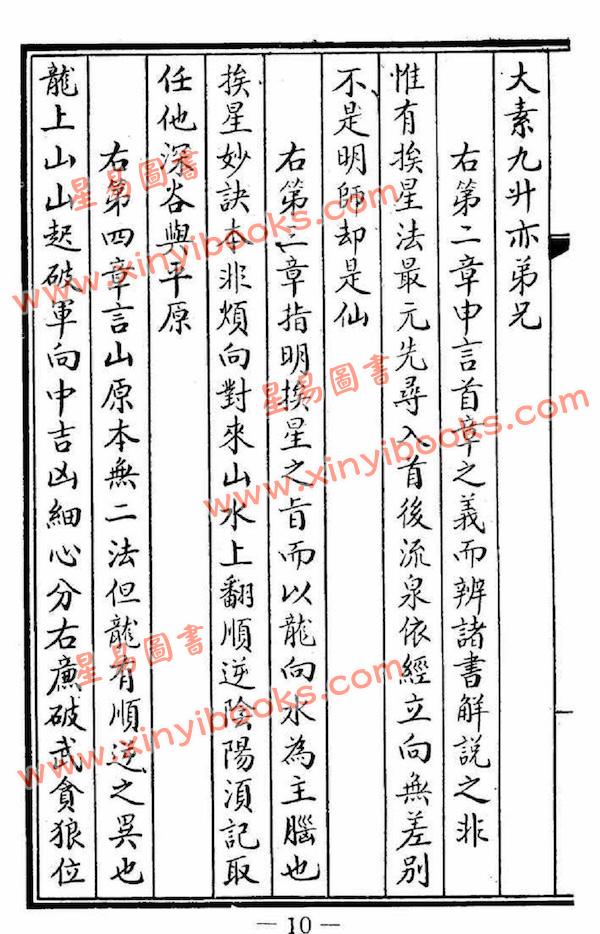 大素九升亦弟兄
右第二章申言首章之義而辨諸書解說之非
惟有挨星法最元先尋入首後流泉依經立向無差別
不是明師却是仙
右第三章指明挨星之旨而以龍向水為主腦也
挨星妙訣本非煩向對來山水上翻順逆陰陽須記取
任他深谷與平原
右第四章言山原本無二法但龍有順逆之異也
龍上山山起破軍向中吉凶細心分右廉破武貪狼位
— 10 —
星易圖書
www.xinyibooks.com
星易圖書
www.xinyibooks.com
星易圖書
www.xinyibooks.com